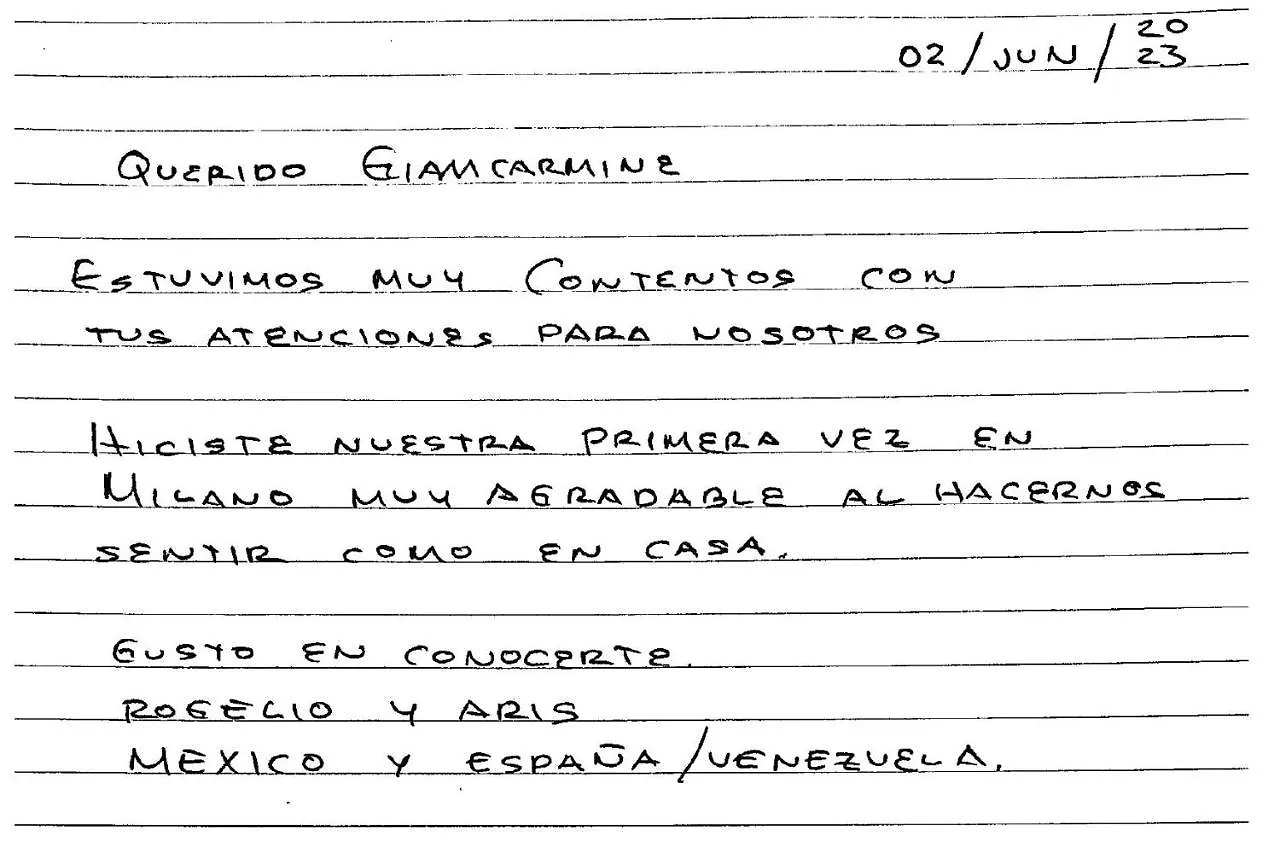 02/JUN/2023
QUERIDO GIANCARMINE
ESTUVIMOS MUY CONTENTOS CON
TUS ATENCIONES PARA NOSOTROS
HICISTE NUESTRA PRIMERA VEZ EN
MILANO MUY AGRADABLE AL HACERNOS
SENTIR COMO EN CASA.
GUSTO EN CONOCERTE.
ROGELIO Y ARIS
MEXICO Y ESPAÑA/VENEZUELA.